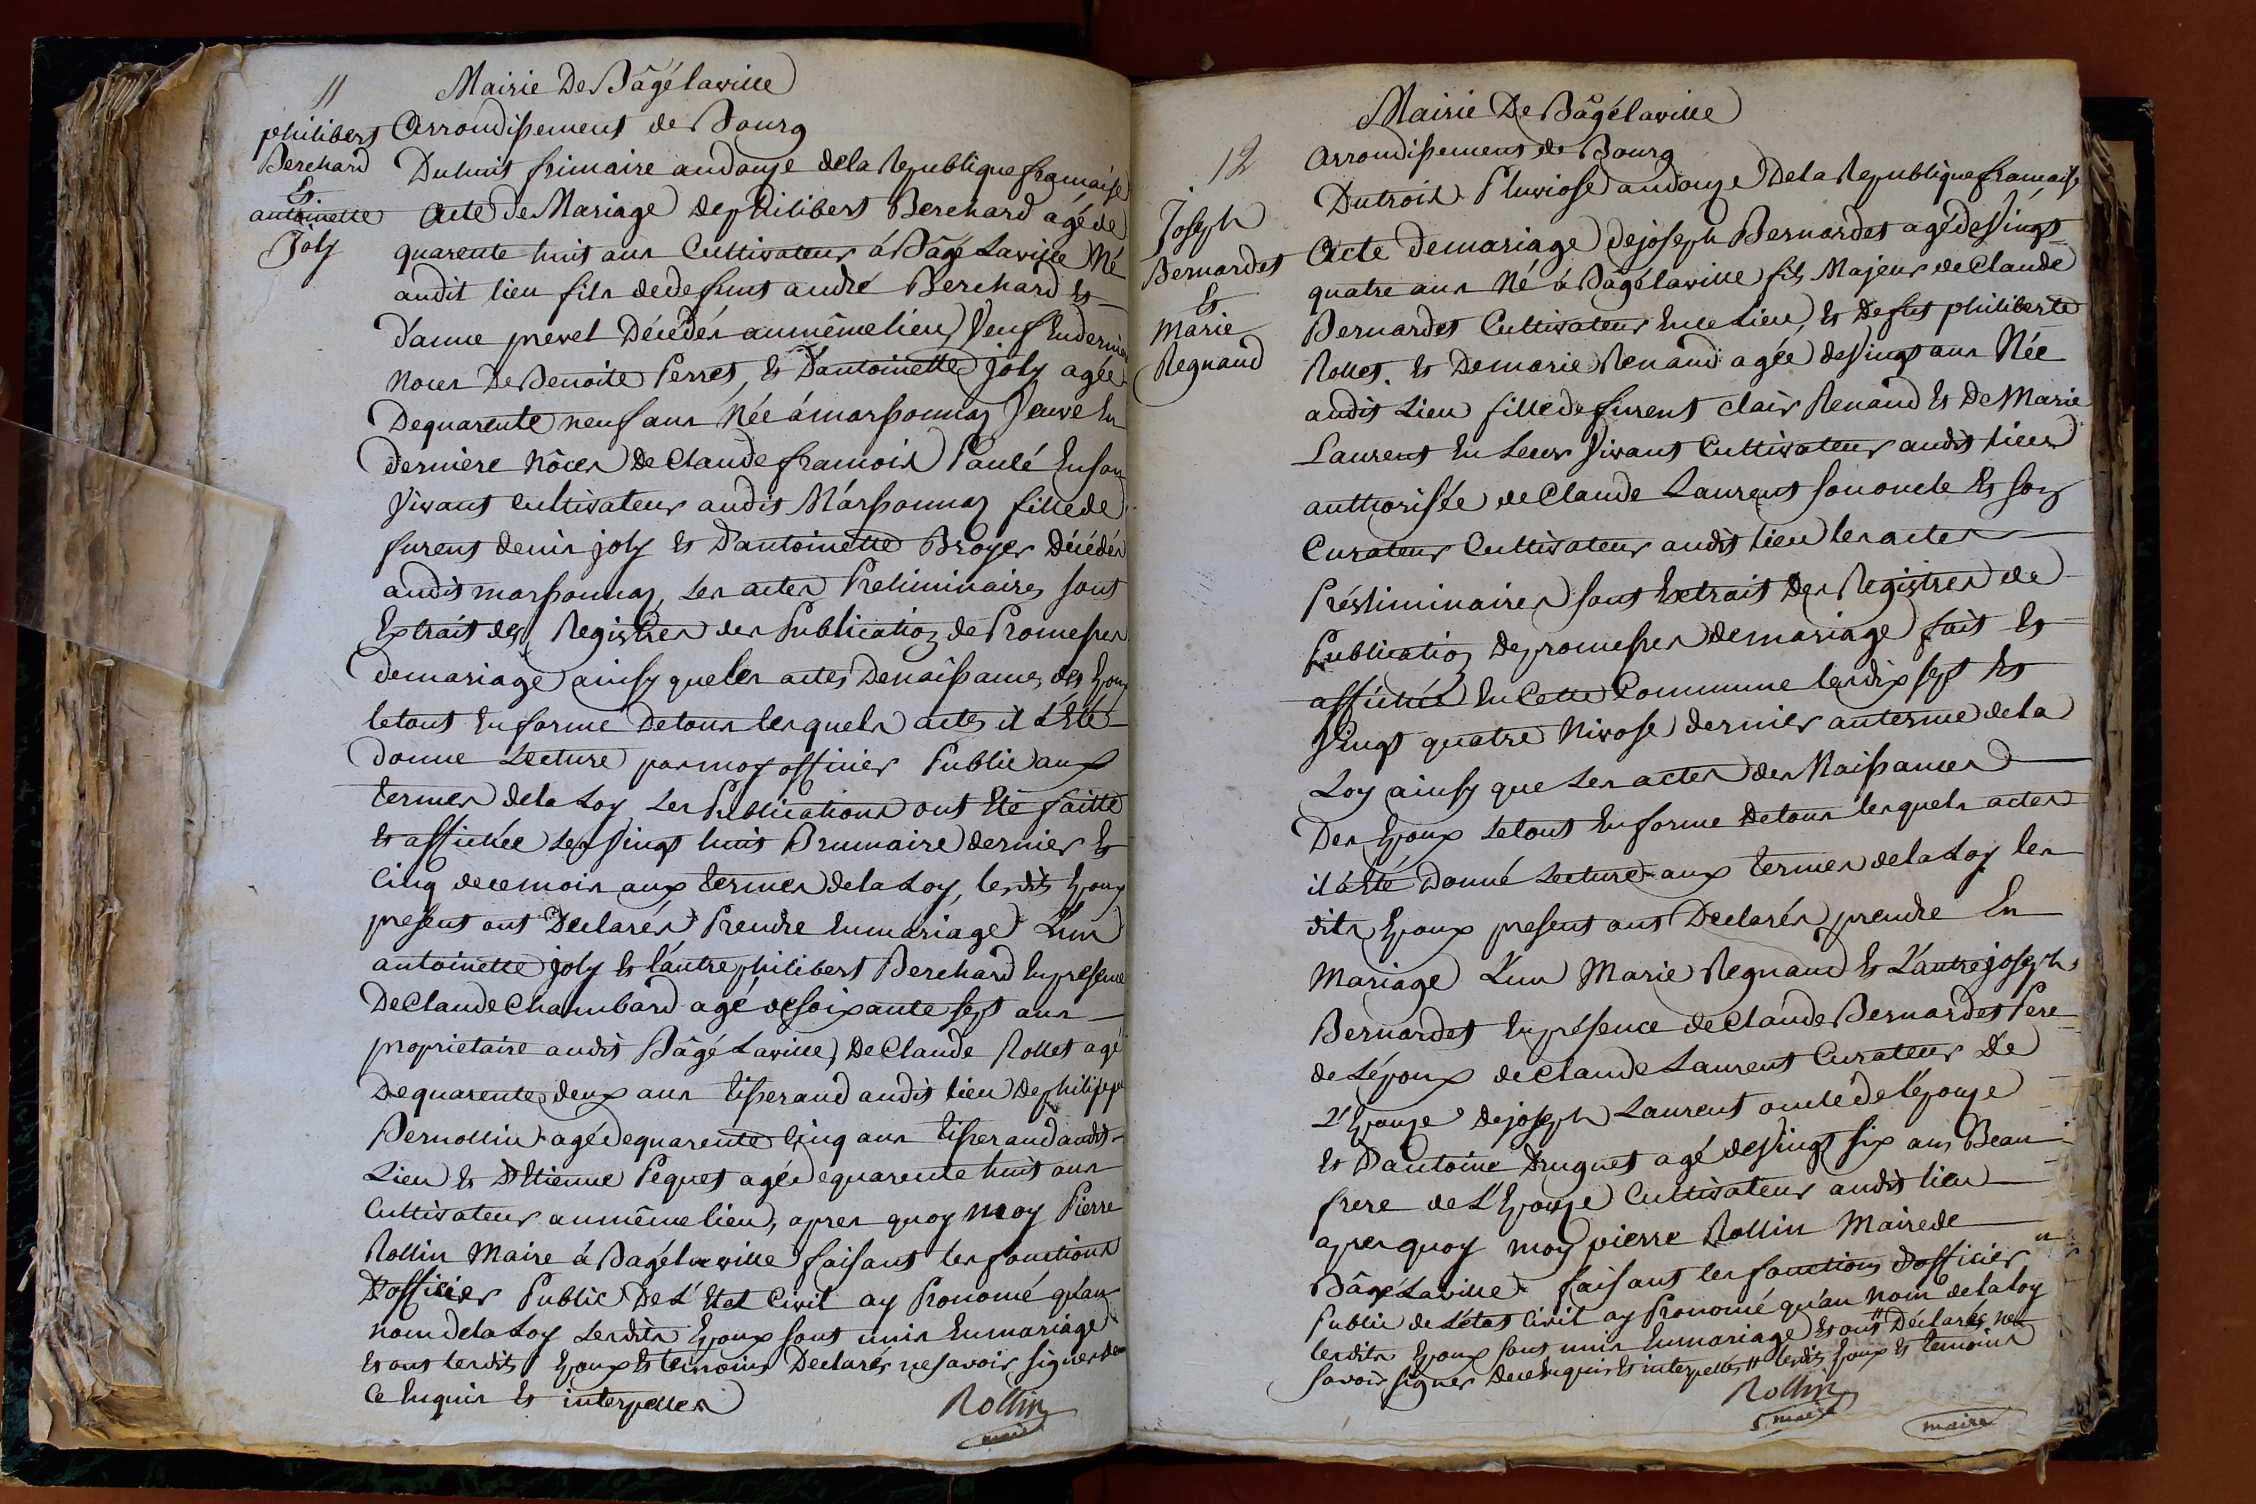 11
Mairie De Bâgé laville
Arrondissement de Bourg
philibert
Berchard
Et
antoinette
Joly
Du huit frimaire an douze de la Republique française
Acte De Mariage De philibert Berchard agé de
quarente huit ans Cultivateur á Bâgé Laville Né
audit lieu fils de defunt andré Berchard Et
d'anne prevel Décédés au même lieu, Veuf En dernier
noces De Benoite Perret, Et D'antoinette joly agée
De quarente neuf ans Née á marsonnaz Veuve En
derniere nôces De Claude françois Paulé En son
Vivant cultivateur audit Marsonnaz fille de
furent denis joly Et D'antoinette Broyer Décédés
audit marsonnaz, Les actes Preliminaires sont
Extrait des Registres des Publication de Promesses
de mariage ainsy que les actes De naissances des Epoux
le tout En forme De tous lesquels actes il a Eté
donne Lecture par moy officier Public aux
termes de la Loy Les Publications ont Eté faitte
Et affichée Les Vingt huit Brumaire dernier Et
Cinq de ce mois aux termes de la Loy, lesdits Epoux
présent ont Declarés Prendre En mariage L'un
antoinette joly Et l'autre philibert Berchard En presence
De Claude Chambard agé de soixante sept ans
proprietaire audit Bâgé Laville, De Claude Rollet agé
De quarente deux ans tisserand audit lieu De philippe
Bernollin agé de quarente Cinq ans tisserand audit
Lieu Et D'Etienne Pequet agé de quarente huit ans
Cultivateur au même lieu, apres quoy moy Pierre
Rollin Maire á Bagé laville faisant les fonctions
D'officier Public De L'Etat Civil ay Pronomé qu'au
nom de la Loy Lesdits Epoux sont unis En mariage
Et ont lesdits Epoux Et temoins Declarés ne savoir signer de
Ce Enquis Et interpellés
Rollin
maire
12
Mairie De Bâgé laville
Arrondissement de Bourg
Joseph
Bernardet
Et
Marie
Regnaud
Du trois Pluviose an douze De la Republique française
Acte de mariage de joseph Bernardet agé de Vingt
quatre ans Né á Bâgé laville fils Majeur de Claude
Bernardet Cultivateur En ce Lieu, Et De fut philiberte
Rollet. Et De marie Renaud agée de Vingt ans Née
audit Lieu fille de furent clair Renaud Et De Marie
Laurent En Leur Vivant Cultivateur audit lieu
authorisée de Claude Laurent son oncle Et son
Curateur Cultivateur audit lieu les actes
Présliminaires sont Extrait Des Registres de
Publication De promesses de mariage fait Et
affichée En Cette Commune les dix sept Et
Vingt quatre Nivose dernier au terme de la
Loy ainsy que Les actes des Naissances
Des Epoux Le tout En forme De tous lesquels actes
il á Eté Donné Lecture aux termes de la Loy les
dits Epoux present ont Declarés prendre En
Mariage L'un Marie Regnaud Et L'autre joseph
Bernardet En présence de Claude Bernardet Pere
de L'époux de Claude Laurent Curateur De
L'Epouze De joseph Laurent oncle de l'épouze
Et D'antoine Druguet agé de Vingt six ans Beau
frere de L'Epouze Cultivateur audit lieu
apres quoy moy pierre Rollin Maire de
Bâgé Laville faisant les fonctions D'officier
Public de L'état Civil ay Pronomé qu'au nom de la loy
lesdits Epoux sont unis En mariage Et ont # Déclarés ne
savoir signer De ce Enquis Et interpellés # lesdits Epoux Et temoins
Rollin
maire
maire